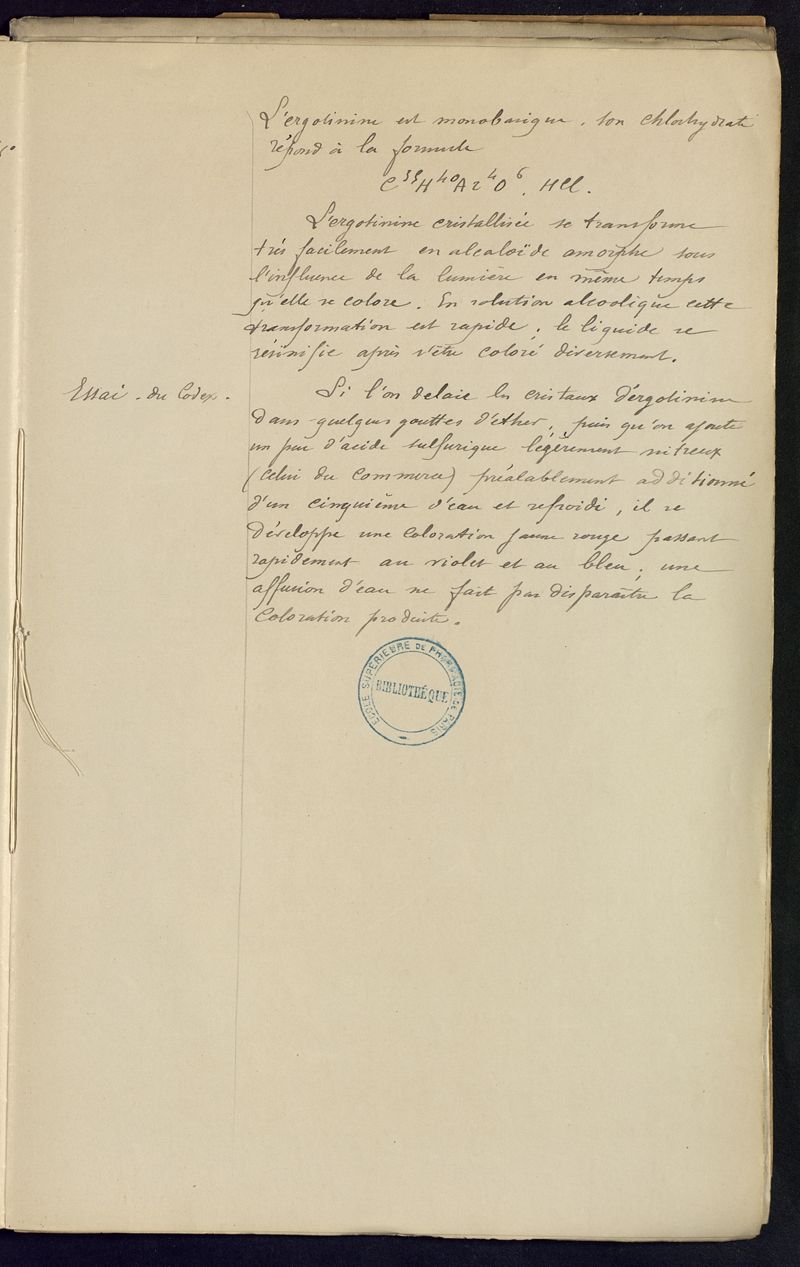 L'ergotinine est monobasique. Son chlorhydrate
répond à la formule
C³⁵H⁴⁰Az⁴O⁶, HCl.
L'ergotinine cristallisée se transforme
très facilement en alcaloïde amorphe sous
l'influence de la lumière en même temps
qu'elle se colore. En solution alcoolique cette
transformation est rapide; le liquide se
résinifie après s'être coloré diversement.
Essai du Codex.
Si l'on délaie les cristaux d'ergotinine
dans quelques gouttes d'éther, puis qu'on ajoute
un peu d'acide sulfurique légèrement nitreux
(celui du commerce) préalablement additionné
d'un cinquième d'eau et refroidi, il se
développe une coloration jaune rouge passant
rapidement au violet et au bleu; une
affusion d'eau ne fait pas disparaître la
coloration produite.
ECOLE SUPÉRIEURE DE PHARMACIE DE PARIS
BIBLIOTHÉQUE